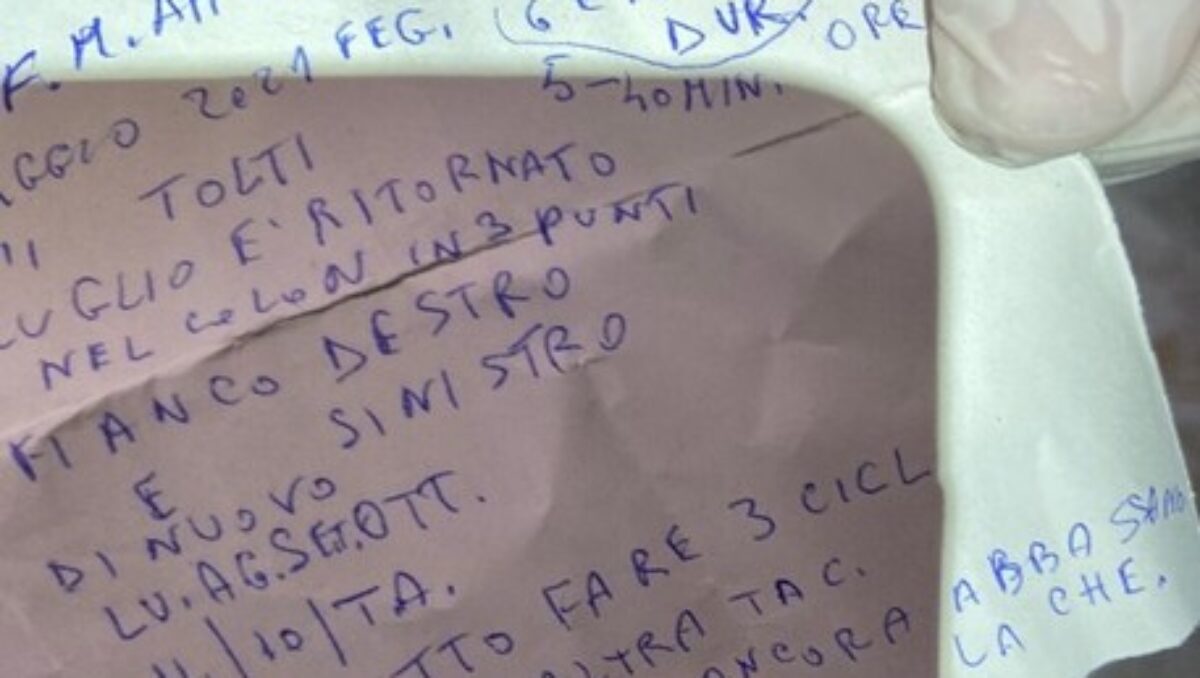 F. M.
2021 FEG.
DUR. ORE
5-40 MIN.
TOLTI
LUGLIO E' RITORNATO
NEL COLON IN 3 PUNTI
FIANCO DESTRO
E SINISTRO
DI NUOVO
LU. AG. SET. OTT.
/10/TA.
FARE 3 CICL
TAC.
ANCORA
ABBASSANO
LA CHE.